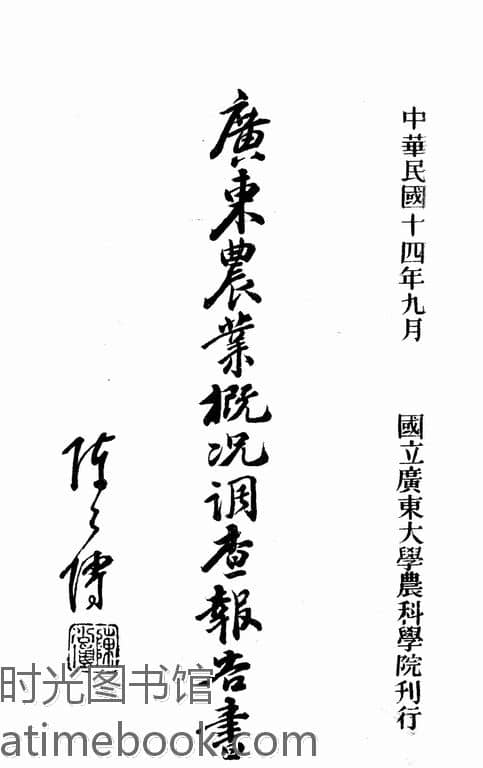 中華民國十四年九月　國立廣東大學農科學院刊行
廣東農業概況調查報告書
陳公博
时光图书馆
atimebook.com